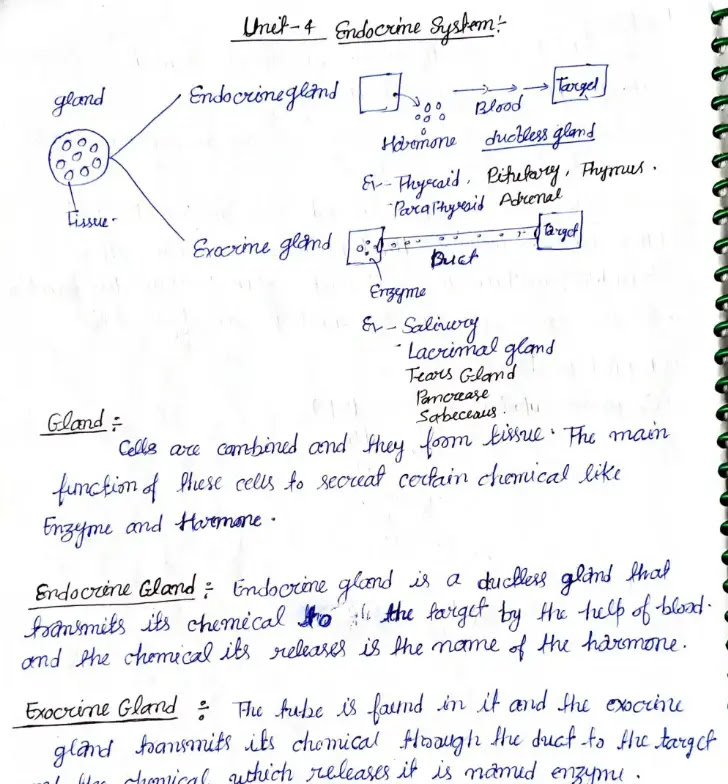 Unit-4 Endocrine System:-
gland
Tissue.
Endocrine gland
Hormone
Blood
Target
ductless gland
Ex- Thyroid, Pitutary, Thymus.
Parathyroid Adrenal
Exocrine gland
Duct
Target
Enzyme
Ex- Salivary
Lacrimal gland
Tears Gland
Pancrease
Sabeceaus.
Gland :-
Cells are combined and they form tissue. The main
function of these cells to secreat certain chemical like
Enzyme and Harmone.
Endocrine Gland :- Endocrine gland is a ductless gland that
transmits its chemical to the target by the help of blood.
and the chemical its releases is the name of the harmone.
Exocrine Gland :- The tube is found in it and the exocrine
gland transmits its chemical through the duct to the target
the chemical which releases it is named enzyme.